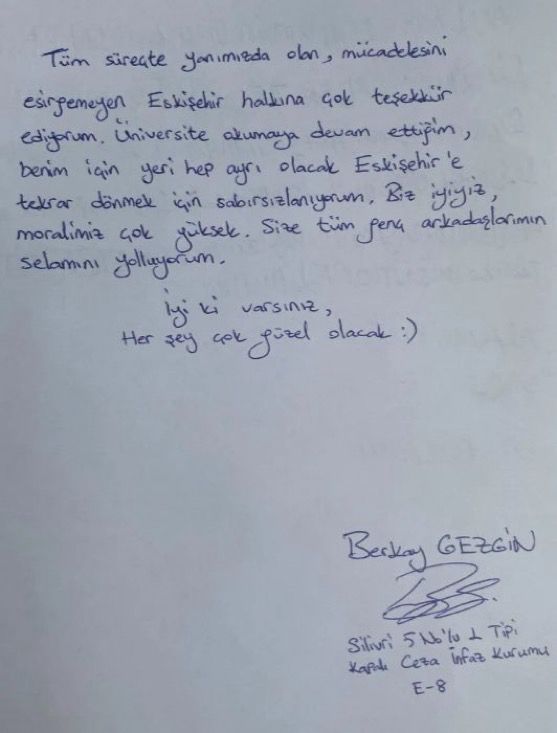 Tüm süreçte yanımızda olan, mücadelesini
esirgemeyen Eskişehir halkına çok teşekkür
ediyorum. Üniversite okumaya devam ettiğim,
benim için yeri hep ayrı olacak Eskişehir'e
tekrar dönmek için sabırsızlanıyorum. Biz iyiyiz,
moralimiz çok yüksek. Size tüm genç arkadaşlarımın
selamını yolluyorum.
İyi ki varsınız,
Her şey çok güzel olacak :)
Berkay GEZGİN
Silivri 5 No'lu L Tipi
Kapalı Ceza İnfaz Kurumu
E-8